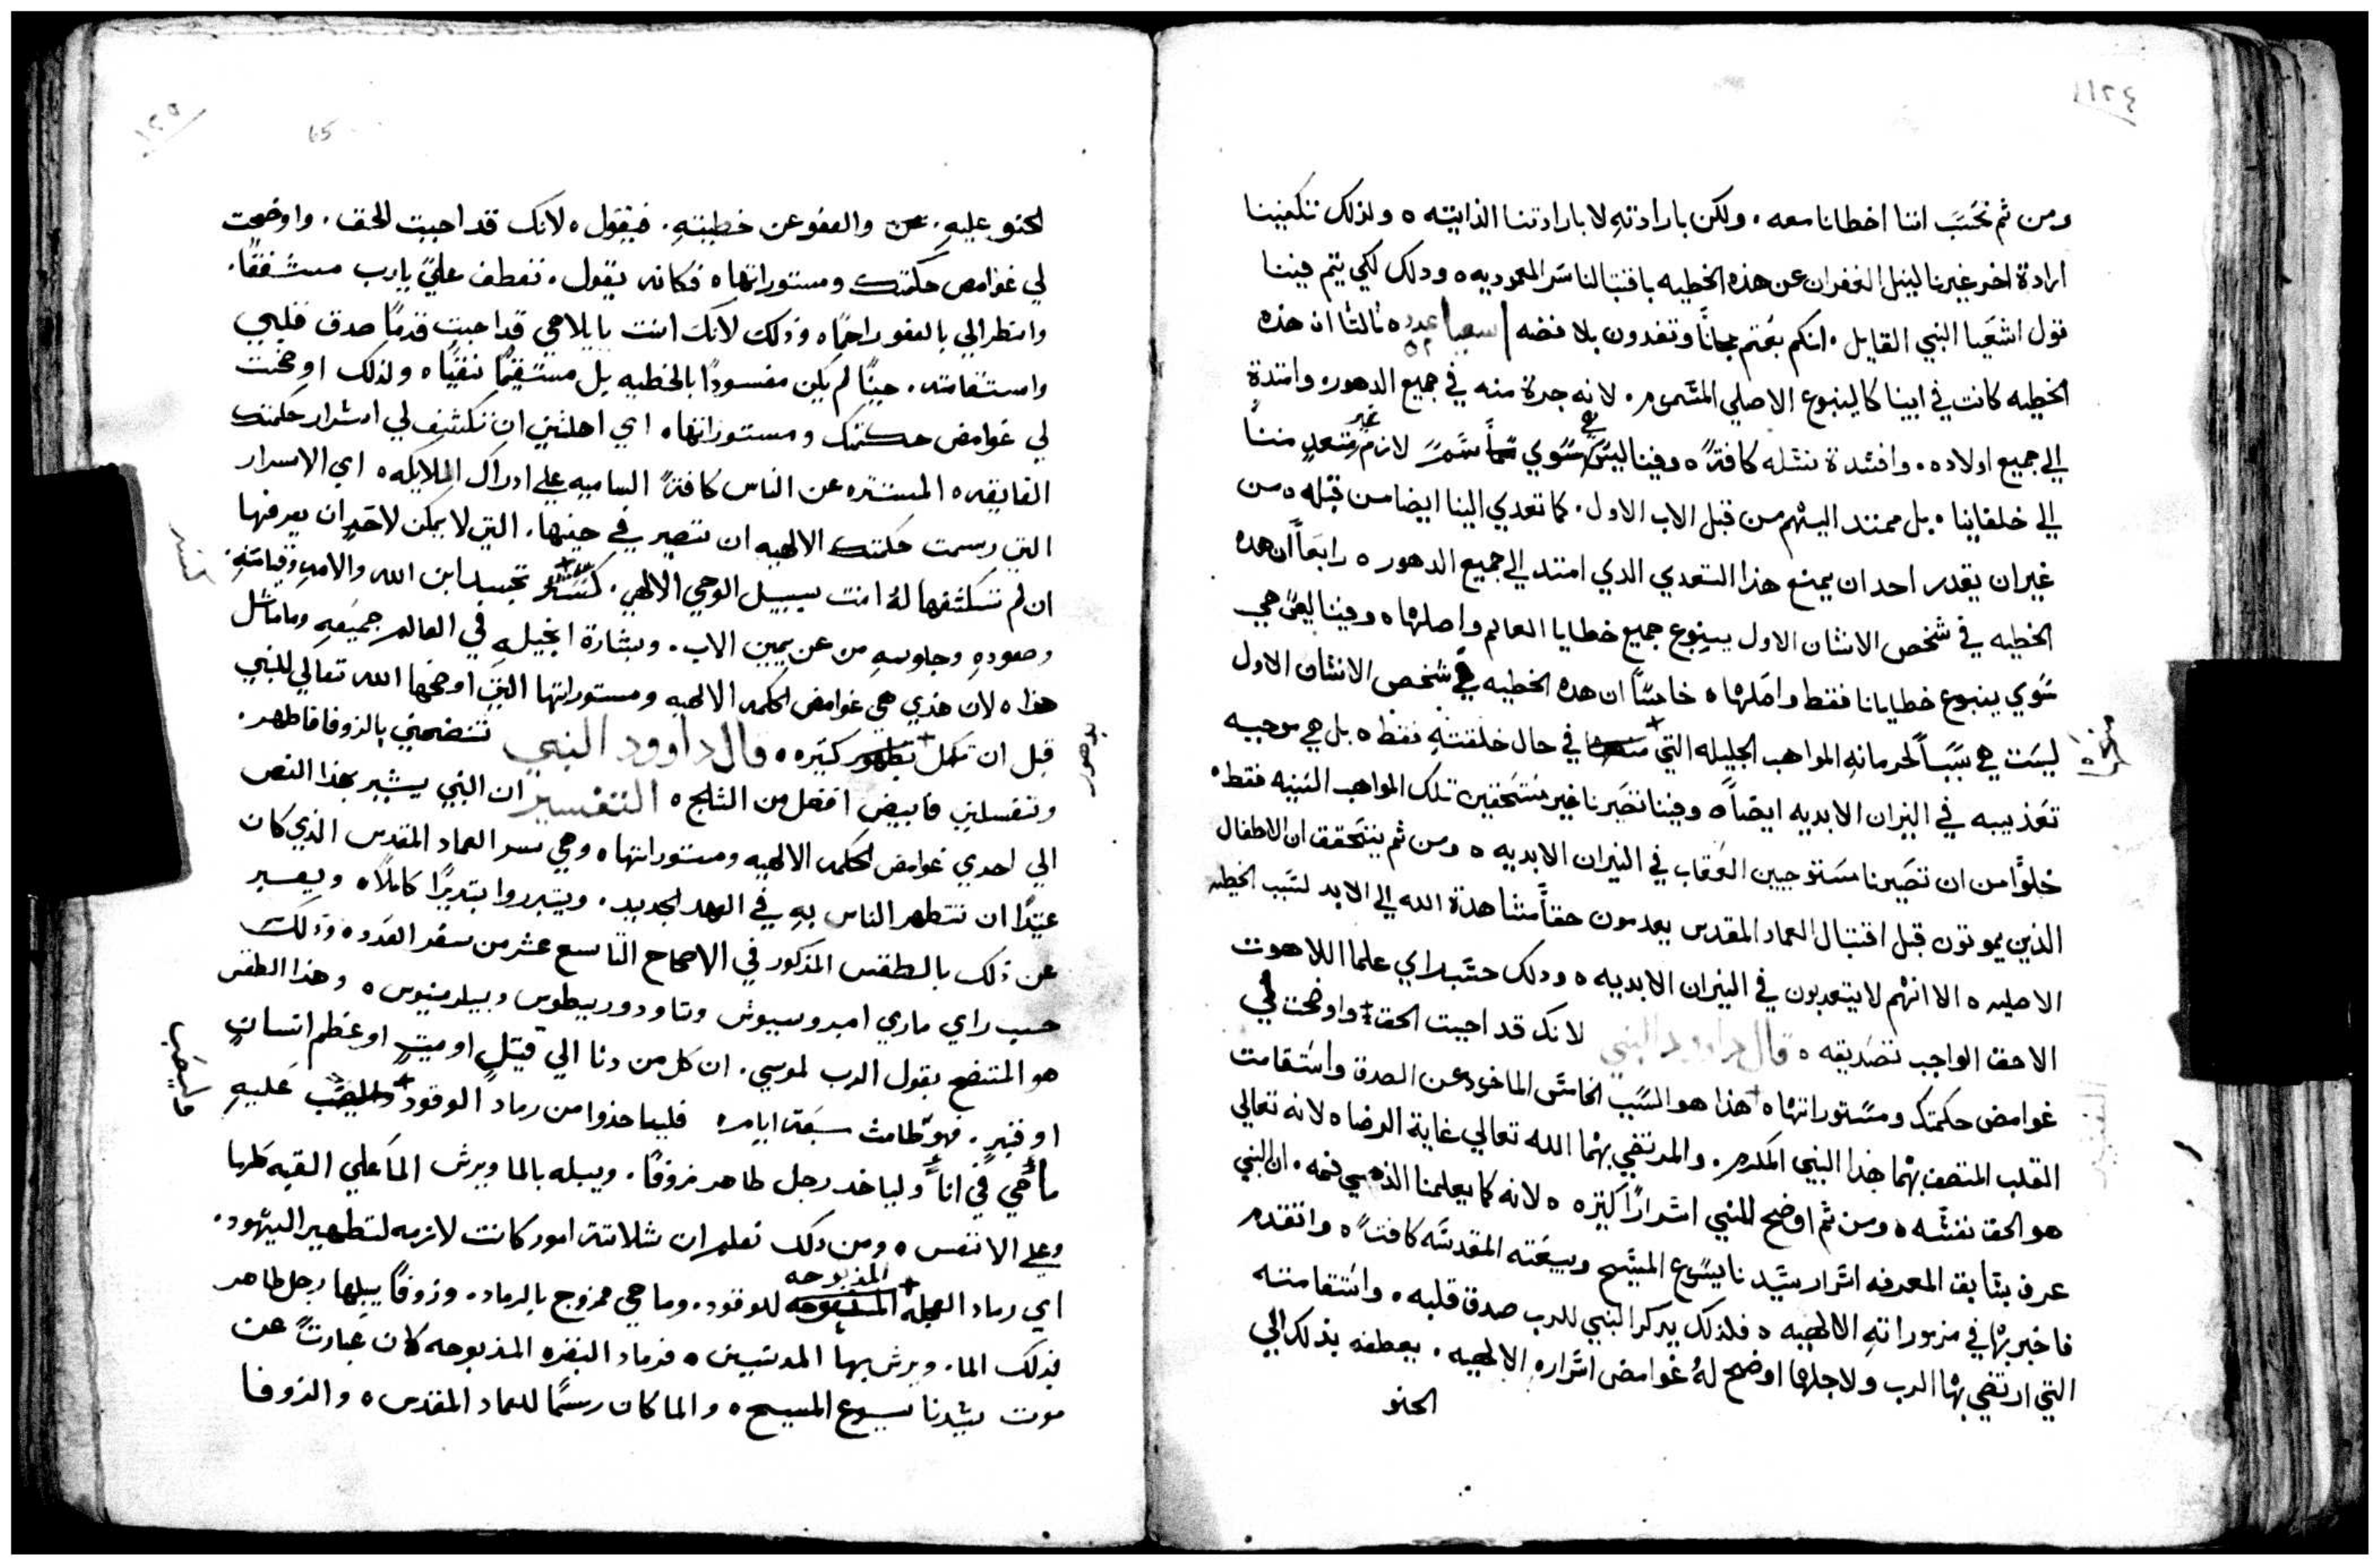 ١٢٤
ومن ثم نحسب اننا اخطانا معه. ولكن بارادتهِ لا بارادتنا الذاتيته ه ولذلك تكفينا
ارادة اخر غيرنا لنيل الغفران عن هذه الخطيه باقتبالنا سر المعموديه ه ودلك لكي يتم فيننا
قول اشعيا النبي القايل. انكم بعتم مجاناً وتفدون بلا فضه اسعيا عدد ه ثالثا ان هذه
الخطيه كانت في ابينا كالينبوع الاصلي المسمى م. لانه جرة منه في جميع الدهور ه وامتدة
الي جميع اولاده. وافسدة نسله كافةً ه وفينا ليس سوي سمّ لازم غير متعدٍ مننا
الي خلفاينا. بل ممتد اليهم من قبل الاب الاول. كما تعدي الينا ايضا من قبله ه من
غير ان يقدر احد ان يمنع هذا التعدي الدي امتد الي جميع الدهور ه رابعاً ان هده
الخطيه في شخص الانسان الاول ينبوع جميع خطايا العالم واصلها ه وفينا ليس هي
سوي ينبوع خطايانا فقط واصلها ه خامساً ان هده الخطيه في شخص الانسان الاول
ليست هي سبباً لحرمانهِ المواهب الجليله التي في حال خلقتهِ فقط ه بل هي موجبه
تعذيبه في النيران الابديه ايضاً ه وفينا تصيرنا غير مستحقين تلك المواهب السنيه فقط ه
خلوًا من ان تصيرنا مستوجبين العقاب في النيران الابديه ه ومن ثم يتحقق ان الاطفال
الذين يموتون قبل اقتبال العماد المقدس يعدمون حقاً مشاهدة الله الي الابد لسبب الخطيه
الاصليه ه الا انهم لا يتعدبون في النيران الابديه ه ودلك حسب راي علما اللاهوت
الاحق الواجب تصديقه ه قال داوود النبي لانك قد احببت الحق واوضحت لي
غوامض حكمتك ومستوراتها ه هذا هو السبب الخامس الماخود عن الصدق واستقامت
القلب المتصف بهما هذا النبي المكرم. والمرتضي بهما الله تعالي غاية الرضا ه لانه تعالي
هو الحق نفسه ه ومن ثم اوضح للنبي اسراراً كثيره ه لانه كما يعلمنا الذهبي فمه. ان النبي
عرف بسابق المعرفه اسرار سيدنا يسوع المسيح وبيعته المقدسه كافةً ه وانتقدم
فاخبر بها في مزموراته الالهيه ه فلذلك يدكر النبي للرب صدق قلبه. واستقامته
التي ارتضي بها الرب ولاجلها اوضح لهُ غوامض اسراره الالهيه. يعطفه بذلك الي
الحنو
١٢٥
65
الحنو عليهِ. والعفو عن خطيتهِ. فيقول ه لانك قد احببت الحق. واوضحت
لي غوامض حكمتك ومستوراتها ه فكانه يقول. تعطف عليّ يا رب مشفقاً.
وانظر الي بالعفو راحماً ه وذلك لانك انت يا الاهي قد احببت قدماً صدق قلبي
واستقامته. حيناً لم يكن مفسودًا بالخطيه بل مستقيماً نقيًا ه ولذلك اوضحت
لي غوامض حكمتك ومستوراتها ه اي اهلتني ان تكشف لي اسرار حكمتك
الفايقه ه المستتره عن الناس كافةً الساميه علي ادراك الملايكه ه اي الاسرار
التي رسمت حكمتك الالهيه ان تصير في حينها. التي لا يمكن لاحدٍ ان يعرفها
ان لم تكشفها لهُ انت بسبيل الوحي الالهي. كسر تجسيد ابن الله والامهِ وقيامتهِ
وصعودهِ وجلوسهِ من عن يمين الاب. وبشارة انجيلهِ في العالم جميعهِ وماماثل
هذا ه لان هذي هي غوامض الحكمه الالهيه ومستوراتها التي اوضحها الله تعالي للنبي
قبل ان تكمل كثيره ه قال داوود النبي تنضحني بالزوفا فاطهر.
وتغسلني فابيض افضل من الثلج ه التفسير ان النبي يشير بهذا النص
الي احدي غوامض الحكمه الالهيه ومستوراتها ه وهي سر العماد المقدس الذي كان
عتيدًا ان تتطهر الناس بهِ في العهد الجديد. ويتبرروا بتديرًا كاملًا ه ويفسر
عن ذلك بالطقس المذكور في الاصحاح التاسع عشر من سفر العدد ه وذلك
حسب راي ماري امبروسيوس وتاودوريطوس وبيلرمينوس ه وهذا الطقس
هو المتضح بقول الرب لموسي. ان كل من دنا الي قتيلٍ او ميتٍ او عظم انسانٍ
او قبرٍ. فهو طامث سبعة ايام ه فلياخذوا من رماد الوقود وليصب عليهِ
مآ حي في انآ وليا خد رجل طاهر زوفا. ويبله بالما ويرش المآ علي القبه كلها
وعلي الانفس ه ومن دلك نعلم ان ثلاثة امور كانت لازمه لتطهير اليهود.
اي رماد العجله المذبوحه للوقود. وما حي ممزوج بالرماد. وزوفا يبلها رجل طاهر
بذلك الما. ويرش بها المدنسين ه فرماد البقره المذبوحه كان عبارةً عن
موت سيدنا يسوع المسيح ه والما كان رسمًا للعماد المقدس ه والزوفا